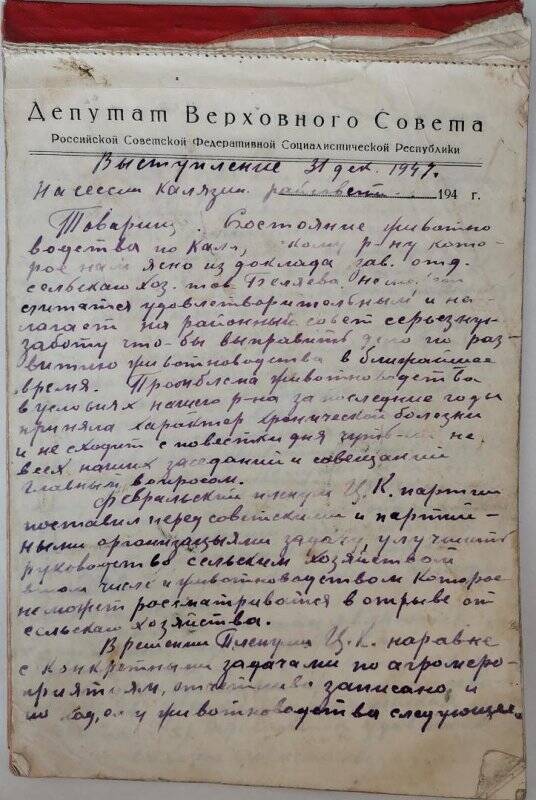 Депутат Верховного Совета
Российской Советской Федеративной Социалистической Республики
Выступление 31 дек. 1947.
На сессии Калязин. райсовет 194 г.
Товарищ. Состояние животно
водства по Кал кому р-ну кото-
рое нам ясно из доклада зав. отд.
сельскаго хоз. тов Беляева, не
считатся удовлетворительным и на-
лагает на районный совет серьезную
заботу что-бы выправить дело по раз-
витию животноводства в ближайшее
время. Проиблема животноводства
в условьях нашего р-на за последние годы
приняла характер хронической болезни
и не сходит с повестки дня чуть-ли не
всех наших заседаний и совещаний
главным вопросом.
Февральский пленум Ц.К. партии
поставил перед советскими и партий-
ными организацыями задачу, улучшить
руководство сельским хозяйством
в том числе и животноводством которое
не может россматриватся в отрыве от
сельскаго хозяйства.
В решении Пленума Ц.К. наравне
с конкретными задачами по агромеро-
приятиям, отчетливо записано, и
по животноводства следующее